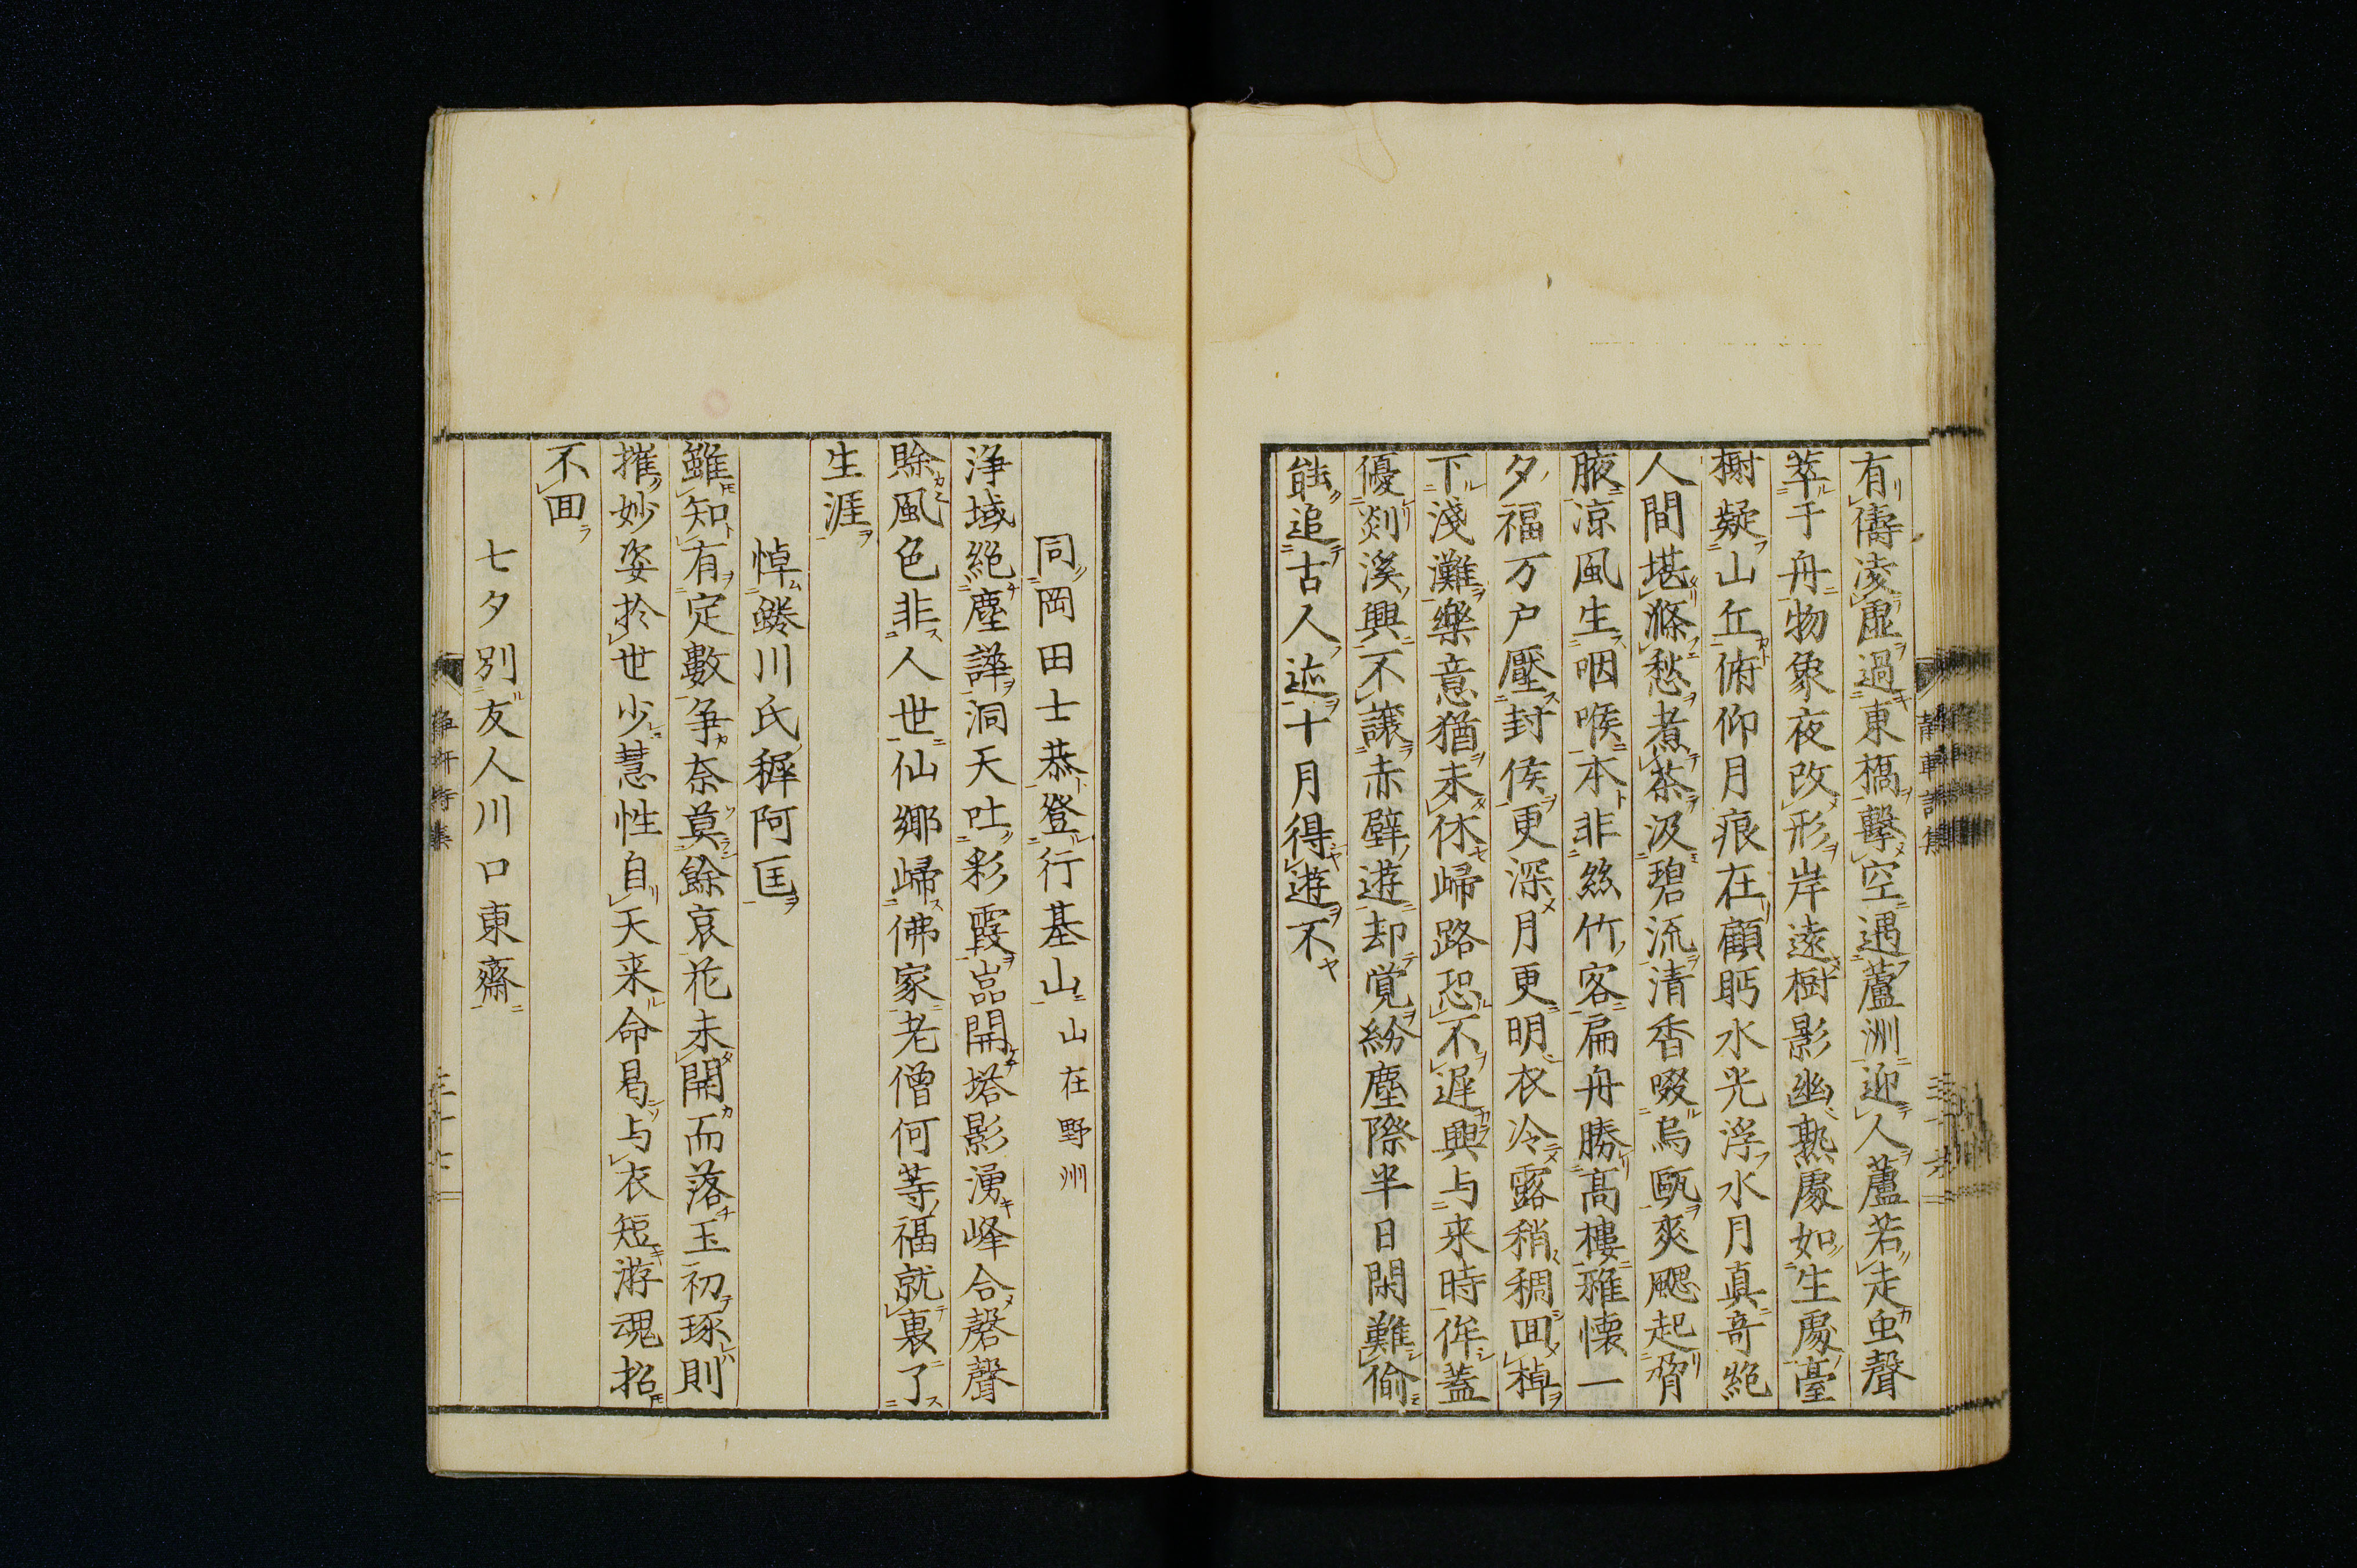 有儔凌虚過東橋擊空遇蘆洲迎人蘆若走虫聲
萃于舟物象夜改形岸遠樹影幽熟處如生處臺
榭疑山丘俯仰月痕在顧眄水光浮水月真奇絶
人間堪滌愁煮茶汲碧流清香啜烏甌爽颸起脅
腋凉風生咽喉本非絲竹客扁舟勝高樓雅懐一
夕福万户壓封侯更深月更明衣冷露稍稠囬棹
下淺灘樂意猶未休歸路恐不遲興与来時侔蓋
優剡溪興不讓赤壁遊却覚紛塵際半日閑難偷
能追古人迹十月得遊不
同岡田士恭登行基山 山在野洲
浄域絶塵譁洞天吐彩霞嵓開塔影湧峰合磬聲
賒風色非人世仙郷歸佛家老僧何等福就裏了
生涯
悼鰺川氏穉阿匡
雖知有定數争奈莫餘哀花未開而落玉初琢則
摧妙姿於世少慧性自天来命曷与衣短游魂招
不囬
七夕別友人川口東齋